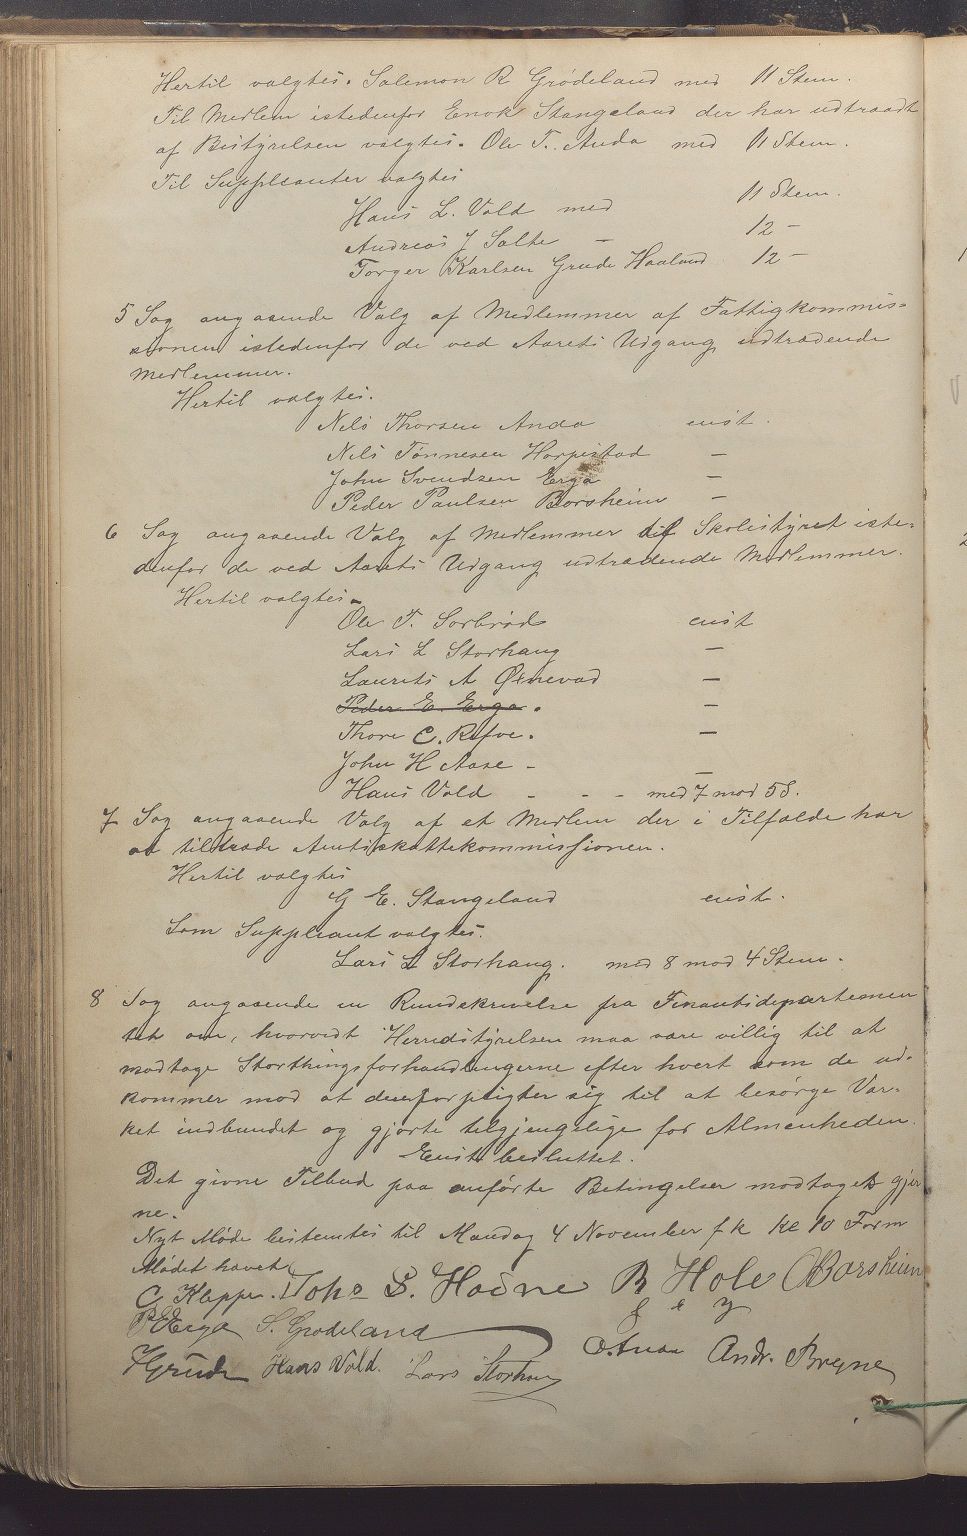 Hertil valgtes. Salemon R Grødeland med 11 Stem.
Til Medlem istedenfor Enok Stangeland der har udtraadt
af Bestyrelsen valgtes. Ole T. Anda med 11 Stem.
Til Suppleanter valgtes
Hans L. Vold med 11 Stem.
Andreas J Salte — 12 —
Torger Karlsen Grude Haaland 12 —
5 Sag angaaende Valg af Medlemmer af Fattigkommis-
sionen istedenfor de ved Aarets Udgang udtrædende
Medlemmer.
Hertil valgtes.
Nels Thorsen Anda enst.
Nils Tønnesen Horpestad —
John Svendsen Erga —
Peder Paulsen Borsheim —
6 Sag angaaende Valg af Medlemmer til Skolestyret iste-
denfor de ved Aarets Udgang udtrædende Medlemmer.
Hertil valgtes.
Ole T. Sorbrød enst
Lars L Storhaug —
Laurits A Øxnevad —
Peder E. Erga. —
Thore C. Refve. —
John H Aase - —
Hans Vold - - - med 7 mod 5 S.
7 Sag angaaende Valg af et Medlem der i Tilfælde har
at tiltræde Amtsskattekommissionen.
Hertil valgtes
G E. Stangeland enst.
Som Suppleant valgtes.
Lars L Storhaug. med 8 mod 4 Stem.
8 Sag angaaende en Rundskrivelse fra Finantsdepartemen
tet om, hvorvidt Herredstyrelsen maa være villig til at
modtage Storthingsforhandlingerne efter hvert som de ud-
kommer mod at den forpligter sig til at besørge Vær-
ket indbundet og gjorte tilgjengelige for Almenheden.
Enst. besluttet.
Det givne Tilbud paa anførte Betingelser modtages gjer
ne.
Nyt Møde bestemtes til Mandag 4 November f k kl 10 Form
Mødet hævet
C Kleppe. Johs S. Hodne R Hole O Borsheim
P E Erga S. Grødeland
O. Anda Andr. Bryne
Grude Hans Vold. Lars Storhaug